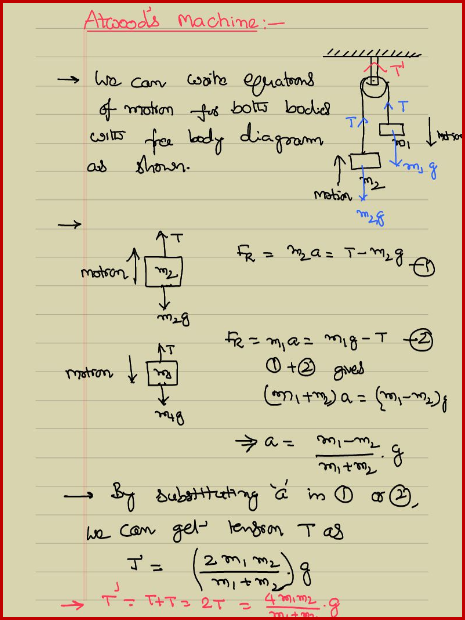 Atwood's Machine:-
→ We can write equations
of motion for both bodies
with free body diagram
as shown.
T'
T
T
m₁
motion
m₁g
m₂
motion
m₂g
→
T
motion
m₂
m₂g
F_R = m₂a = T - m₂g -①
T
motion
m₁
m₁g
F_R = m₁a = m₁g - T -②
① + ② gives
(m₁+m₂)a = (m₁-m₂)g
⇒ a = (m₁-m₂)/(m₁+m₂) . g
→ By substituting 'a' in ① or ②,
we can get tension T as
T = (2m₁m₂/(m₁+m₂)) . g
→ T' = T+T = 2T = 4m₁m₂/(m₁+m₂) . g